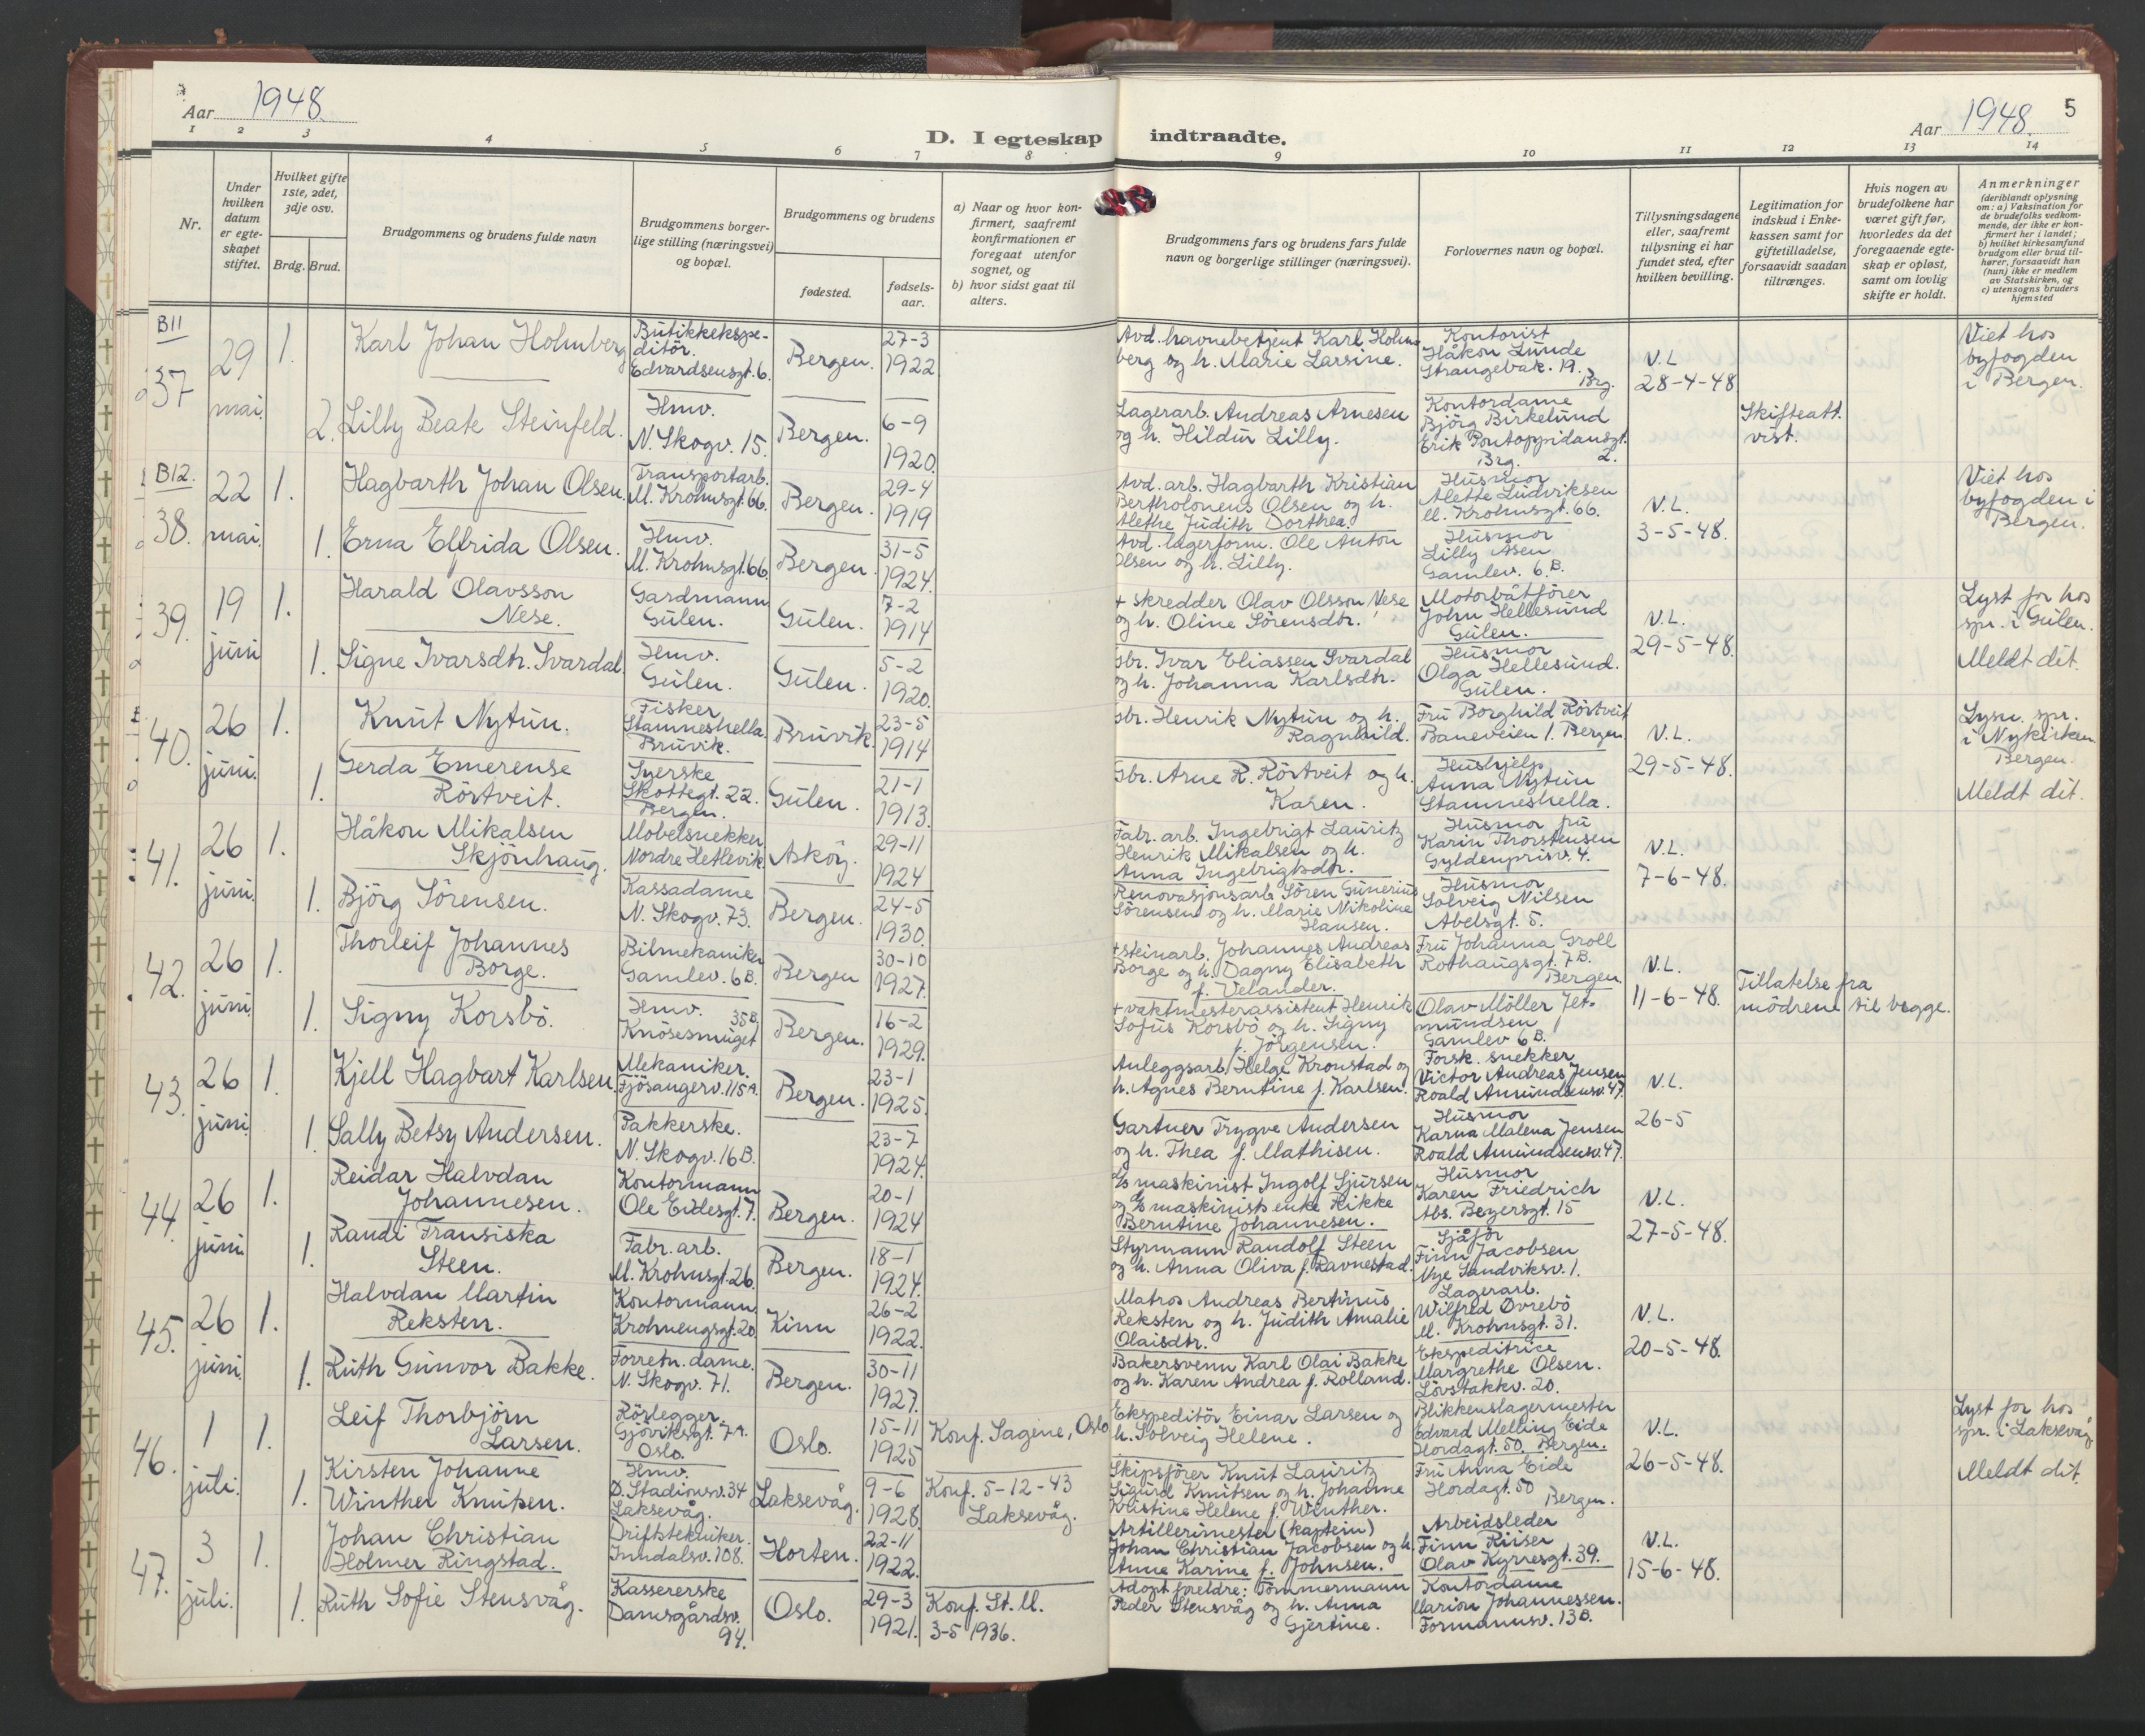 Aar 1948.
D. I egteskap indtraadte.
Aar 1948. 5
1 2 3 4 5 6 7 8 9 10 11 12 13 14
Nr.
Under hvilken datum er egteskapet stiftet.
Hvilket gifte 1ste, 2det, 3dje osv.
Brdg. Brud.
Brudgommens og brudens fulde navn
Brudgommens borgerlige stilling (næringsvei) og bopæl.
Brudgommens og brudens
fødested.
fødselsaar.
a) Naar og hvor konfirmert, saafremt konfirmationen er foregaat utenfor sognet, og
b) hvor sidst gaat til alters.
Brudgommens fars og brudens fars fulde navn og borgerlige stillinger (næringsvei).
Forlovernes navn og bopæl.
Tillysningsdagene eller, saafremt tillysning ei har fundet sted, efter hvilken bevilling.
Legitimation for indskud i Enkekassen samt for giftetilladelse, forsaavidt saadan tiltrænges.
Hvis nogen av brudefolkene har været gift før, hvorledes da det foregaaende egteskap er opløst, samt om lovlig skifte er holdt.
Anmerkninger (deriblandt oplysning om: a) Vaksination for de brudefolks vedkommende, der ikke er konfirmert her i landet; b) hvilket kirkesamfund brudgom eller brud tilhører, forsaavidt han (hun) ikke er medlem av Statskirken, og c) utensogns bruders hjemsted
B11
37 29 mai. 1. Karl Johan Holmberg Butikkekspeditör. Edvardsensgt. 6. Bergen. 27-3 1922 Avd. havnebetjent Karl Holmberg og h. Marie Larsine. Kontorist Håkon Lunde Strangebak. 19. Brg. N.L 28-4-48 Viet hos byfogden i Bergen.
2. Lilly Beate Steinfeld. Hmv. N. Skogv. 15. Bergen. 6-9 1920. Lagerarb. Andreas Arnesen og h. Hildur Lilly. Kontordame Björg Birkelund Erik Pontoppidansgt. 2. Brg. Skifteatt. vist.
B12.
38. 22 mai. 1. Hagbarth Johan Olsen. Transportarb. M. Krohnsgt. 66. Bergen. 29-4 1919 Avd. arb. Hagbarth Kristian Bertholoneus Olsen og h. Alethe Judith Dorthea. Husmor Alette Ludviksen M. Krohnsgt. 66. N.L. 3-5-48. Viet hos byfogden i Bergen.
1. Erna Elfrida Olsen. Hmv. M. Krohnsgt. 66. Bergen. 31-5 1924. Avd. lagerform. Ole Anton Olsen og h. Lilly. Husmor Lilly Åsen Gamlev. 6B.
39. 19 juni 1. Harald Olavsson Nese. Gardmann Gulen. Gulen. 7-2 1914 + skredder Olav Olsson Nese og h. Oline Sörensdtr. Motorbåtförer John Hellesund Gulen. N.L. 29-5-48. Lyst for hos spr. i Gulen. Meldt dit.
1. Signe Ivarsdtr. Svardal Hmv. Gulen. Gulen. 5-2 1920. gbr. Ivar Eliassen Svardal og h. Johanna Karlsdtr. Husmor Olga Hellesund. Gulen.
40. 26 juni. 1. Knut Nytun. Fisker Stamneshella. Bruvik. Bruvik. 23-5 1914 gbr. Henrik Nytun og h. Ragnhild. Fru Borghild Rörtveit Baneveien 1. Bergen N.L. 29-5-48. Lysn. spr. i Nykirken Bergen. Meldt dit.
1. Gerda Emerense Rörtveit. Syerske Skottegt. 22. Bergen. Gulen. 21-1 1913. gbr. Arne R. Rörtveit og h. Karen. Hushjelp Anna Nytun Stamneshella.
41. 26 juni. 1. Håkon Mikalsen Skjönhaug. Möbelsnekker Nordre Hetlevik Asköy. 29-11 1924 Fabr. arb. Ingebrigt Lauritz Henrik Mikalsen og h. Anna Ingebrigtsdtr. Husmor fru Karin Thorstensen Gyldenprisv. 4. N.L. 7-6-48.
1. Björg Sörensen. Kassadame N. Skogv. 73. Bergen. 24-5 1930. Renovasjonsarb. Sören Gunerius Sörensen og h. Marie Nikoline Hansen. Husmor Solveig Nilsen Abelsgt. 5.
42. 26 juni 1. Thorleif Johannes Borge. Bilmekaniker Gamlev. 6B. Bergen 30-10 1927. + steinarb. Johannes Andreas Borge og h. Dagny Elisabeth f. Velander. Fru Johanna Groll Rothaugsgt. 7B. Bergen. N.L. 11-6-48. Tillatelse fra mödrene til begge.
1. Signy Korsbö. Hmv. Knösesmuget 35B. Bergen. 16-2 1929. + vaktmesterassistent Henrik Sofus Korsbö og h. Signy f. Jörgensen. Olav Möller Jetmundsen Gamlev 6B.
43. 26 juni 1. Kjell Hagbart Karlsen. Mekaniker. Fjösangerv. 115A. Bergen. 23-1 1925. Anleggsarb. Helge Kronstad og h. Agnes Berntine f. Karlsen. Forsk. snekker Victor Andreas Jensen Roald Amundsensv. 47. N.L. 26-5
1. Sally Betsy Andersen. Pakkerske. N. Skogv. 16B. 23-7 1924. Gartner Trygve Andersen og h. Thea f. Mathisen. Husmor Karna Malena Jensen Roald Amundsensv. 47.
44. 26 juni 1. Reidar Halvdan Johannesen. Kontormann Ole Eidesgt. 7. Bergen. 20-1 1924 d/s maskinist Ingolf Sjursen og d/s maskinist enke Rikke Berntine Johannesen. Husmor Karen Friedrich Abs. Beyersgt. 15 N.L. 27-5-48.
1. Randi Fransiska Steen. Fabr. arb. M. Krohnsgt. 26. Bergen. 18-1 1924. Styrmann Randolf Steen og h. Anna Oliva f. Ravnestad. Sjåför Finn Jacobsen Nye Sandviksv. 1.
45. 26 juni. 1. Halvdan Martin Reksten. Kontormann Krohnengsgt. 20. Kinn 26-2 1922. Matros Andreas Bertinus Reksten og h. Judith Amalie Olaisdtr. Lagerarb. Wilfred Övrebö M. Krohnsgt. 31. N.L. 20-5-48.
1. Ruth Gunvor Bakke. Forretn. dame. N. Skogv. 71. Bergen. 30-11 1927. Bakersvenn Karl Olai Bakke og h. Karen Andrea f. Rolland. Ekspeditrice Margrethe Olsen. Lövstakkv. 20.
46. 1 juli. 1. Leif Thorbjörn Larsen. Rörlegger. Gjöviksgt. 7A. Oslo. Oslo. 15-11 1925 Konf. Sagene, Oslo Ekspeditör Einar Larsen og h. Solveig Helene. Blikkenslagermester Edvard Melling Eide Hordagt. 50. Bergen. N.L. 26-5-48. Lyst for hos spr. i Laksevåg. Meldt dit.
1. Kirsten Johanne Winther Knutsen. Hmv. D. Stadionsv. 34 Laksevåg. Laksevåg. 9-6 1928. Konf. 5-12-43 Laksevåg. Skipsförer Knut Lauritz Sigurd Knutsen og h. Johanne Kristine Helene f. Winther. Fru Anna Eide Hordagt. 50 Bergen.
47. 3 juli. 1. Johan Christian Holmer Ringstad. Driftstekniker. Inndalsv. 108. Horten. 22-11 1922. Artillerimester (kaptein) Johan Christian Jacobsen og h. Anne Karine f. Johnsen. Arbeidsleder Finn Riiser Olav Kyrresgt. 39. N.L. 15-6-48.
1. Ruth Sofie Stensvåg. Kassererske Damsgårdsv. 94. Oslo. 29-3 1921. Konf. St. M. 3-5 1936. Adopt. foreldre: Tömmermann Peder Stensvåg og h. Anna Gjertine. Kontordame Marion Johannessen. Formannsv. 13B.